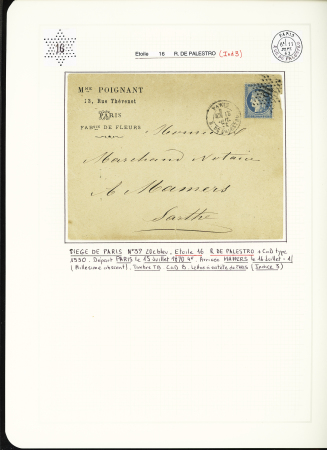 16
Etoile 16 R. DE PALESTRO (Ind 3)
PARIS
Mme POIGNANT
13, Rue Thévenot
PARIS
FABque DE FLEURS
PARIS
Monsieur
Marchand Notaire
A Mamers
Sarthe
SIEGE DE PARIS N°37 20c bleu. Etoile 16 R. DE PALESTRO + CàD type
1530. Départ PARIS le 13 Juillet 1870 4e. Arrivée MAMERS le 14 Juillet
(Millésime absent). Timbre TB CàD B. (Indice 3)